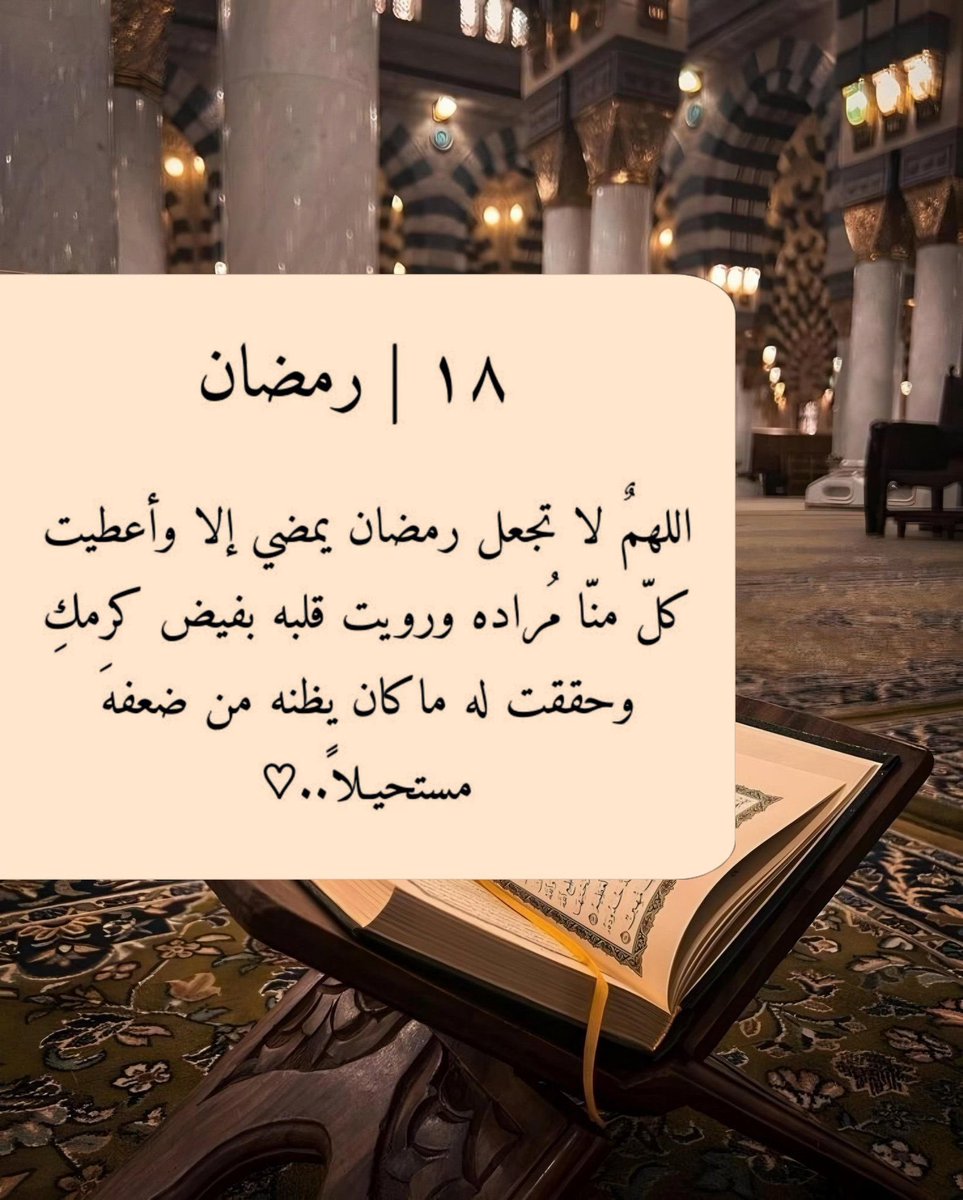 ١٨ | رمضان
اللهمٌ لا تجعل رمضان يمضي إلا وأعطيت
كلّ منّا مُراده ورويت قلبه بفيض كرمكِ
وحققت له ماكان يظنه من ضعفهَ
مستحيلاً..♡